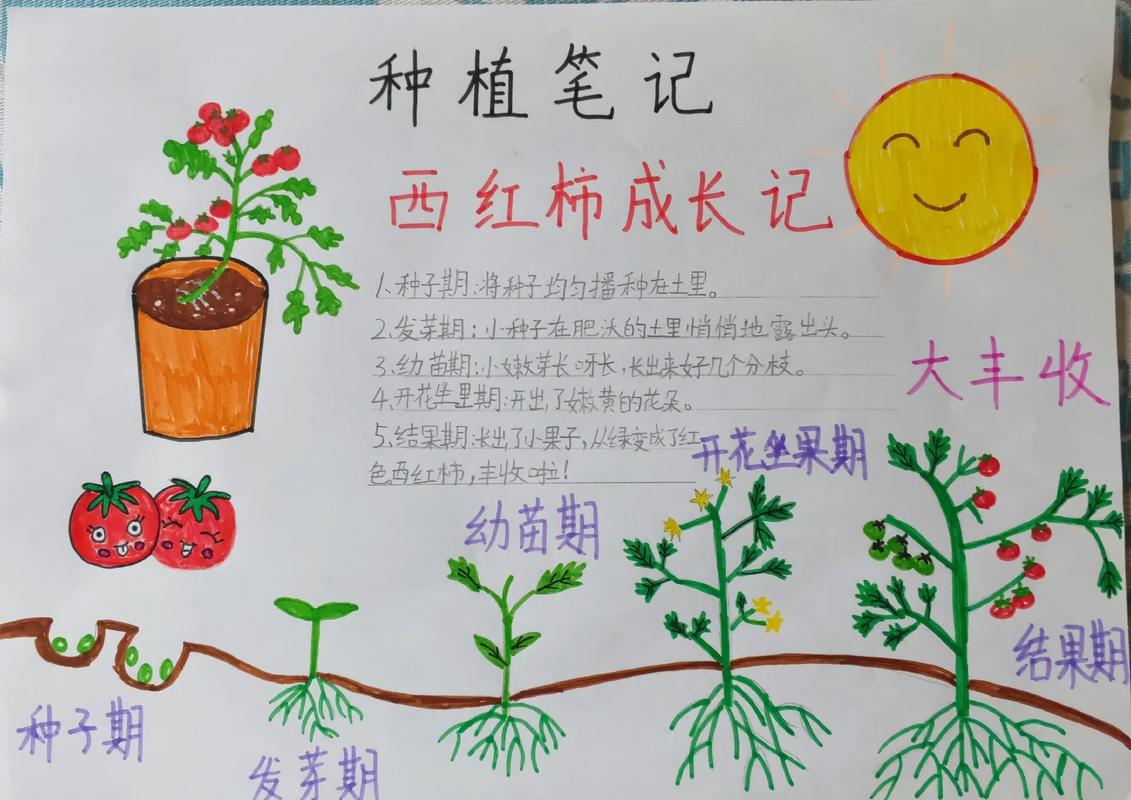 种植笔记
西红柿成长记
1、种子期:将种子均匀播种在土里。
2、发芽期:小种子在肥沃的土里悄悄地露出头。
3、幼苗期:小嫩芽长呀长,长出来好几个分枝。
4、开花坐果期:开出了嫩黄的花朵。
5、结果期:长出了小果子,从绿变成了红
色西红柿,丰收啦!
大丰收
开花坐果期
幼苗期
结果期
种子期
发芽期